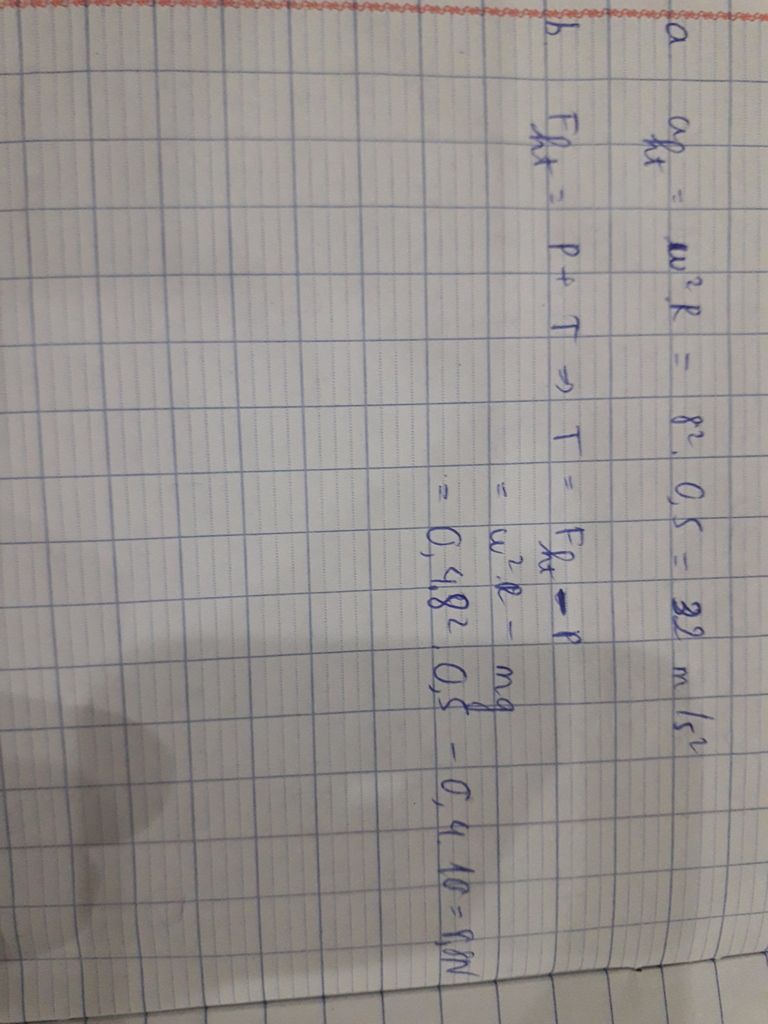 a a_ht = ω²R = 8². 0,5 = 32 m/s²
b. F_ht = P + T => T = F_ht - P
= ω².R - mg
= 0,4.8². 0,5 - 0,4.10 = 8,8N